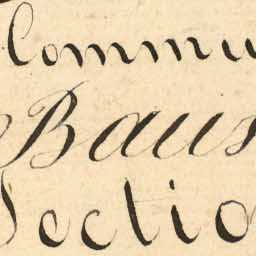 Commu
Baus
Sectio